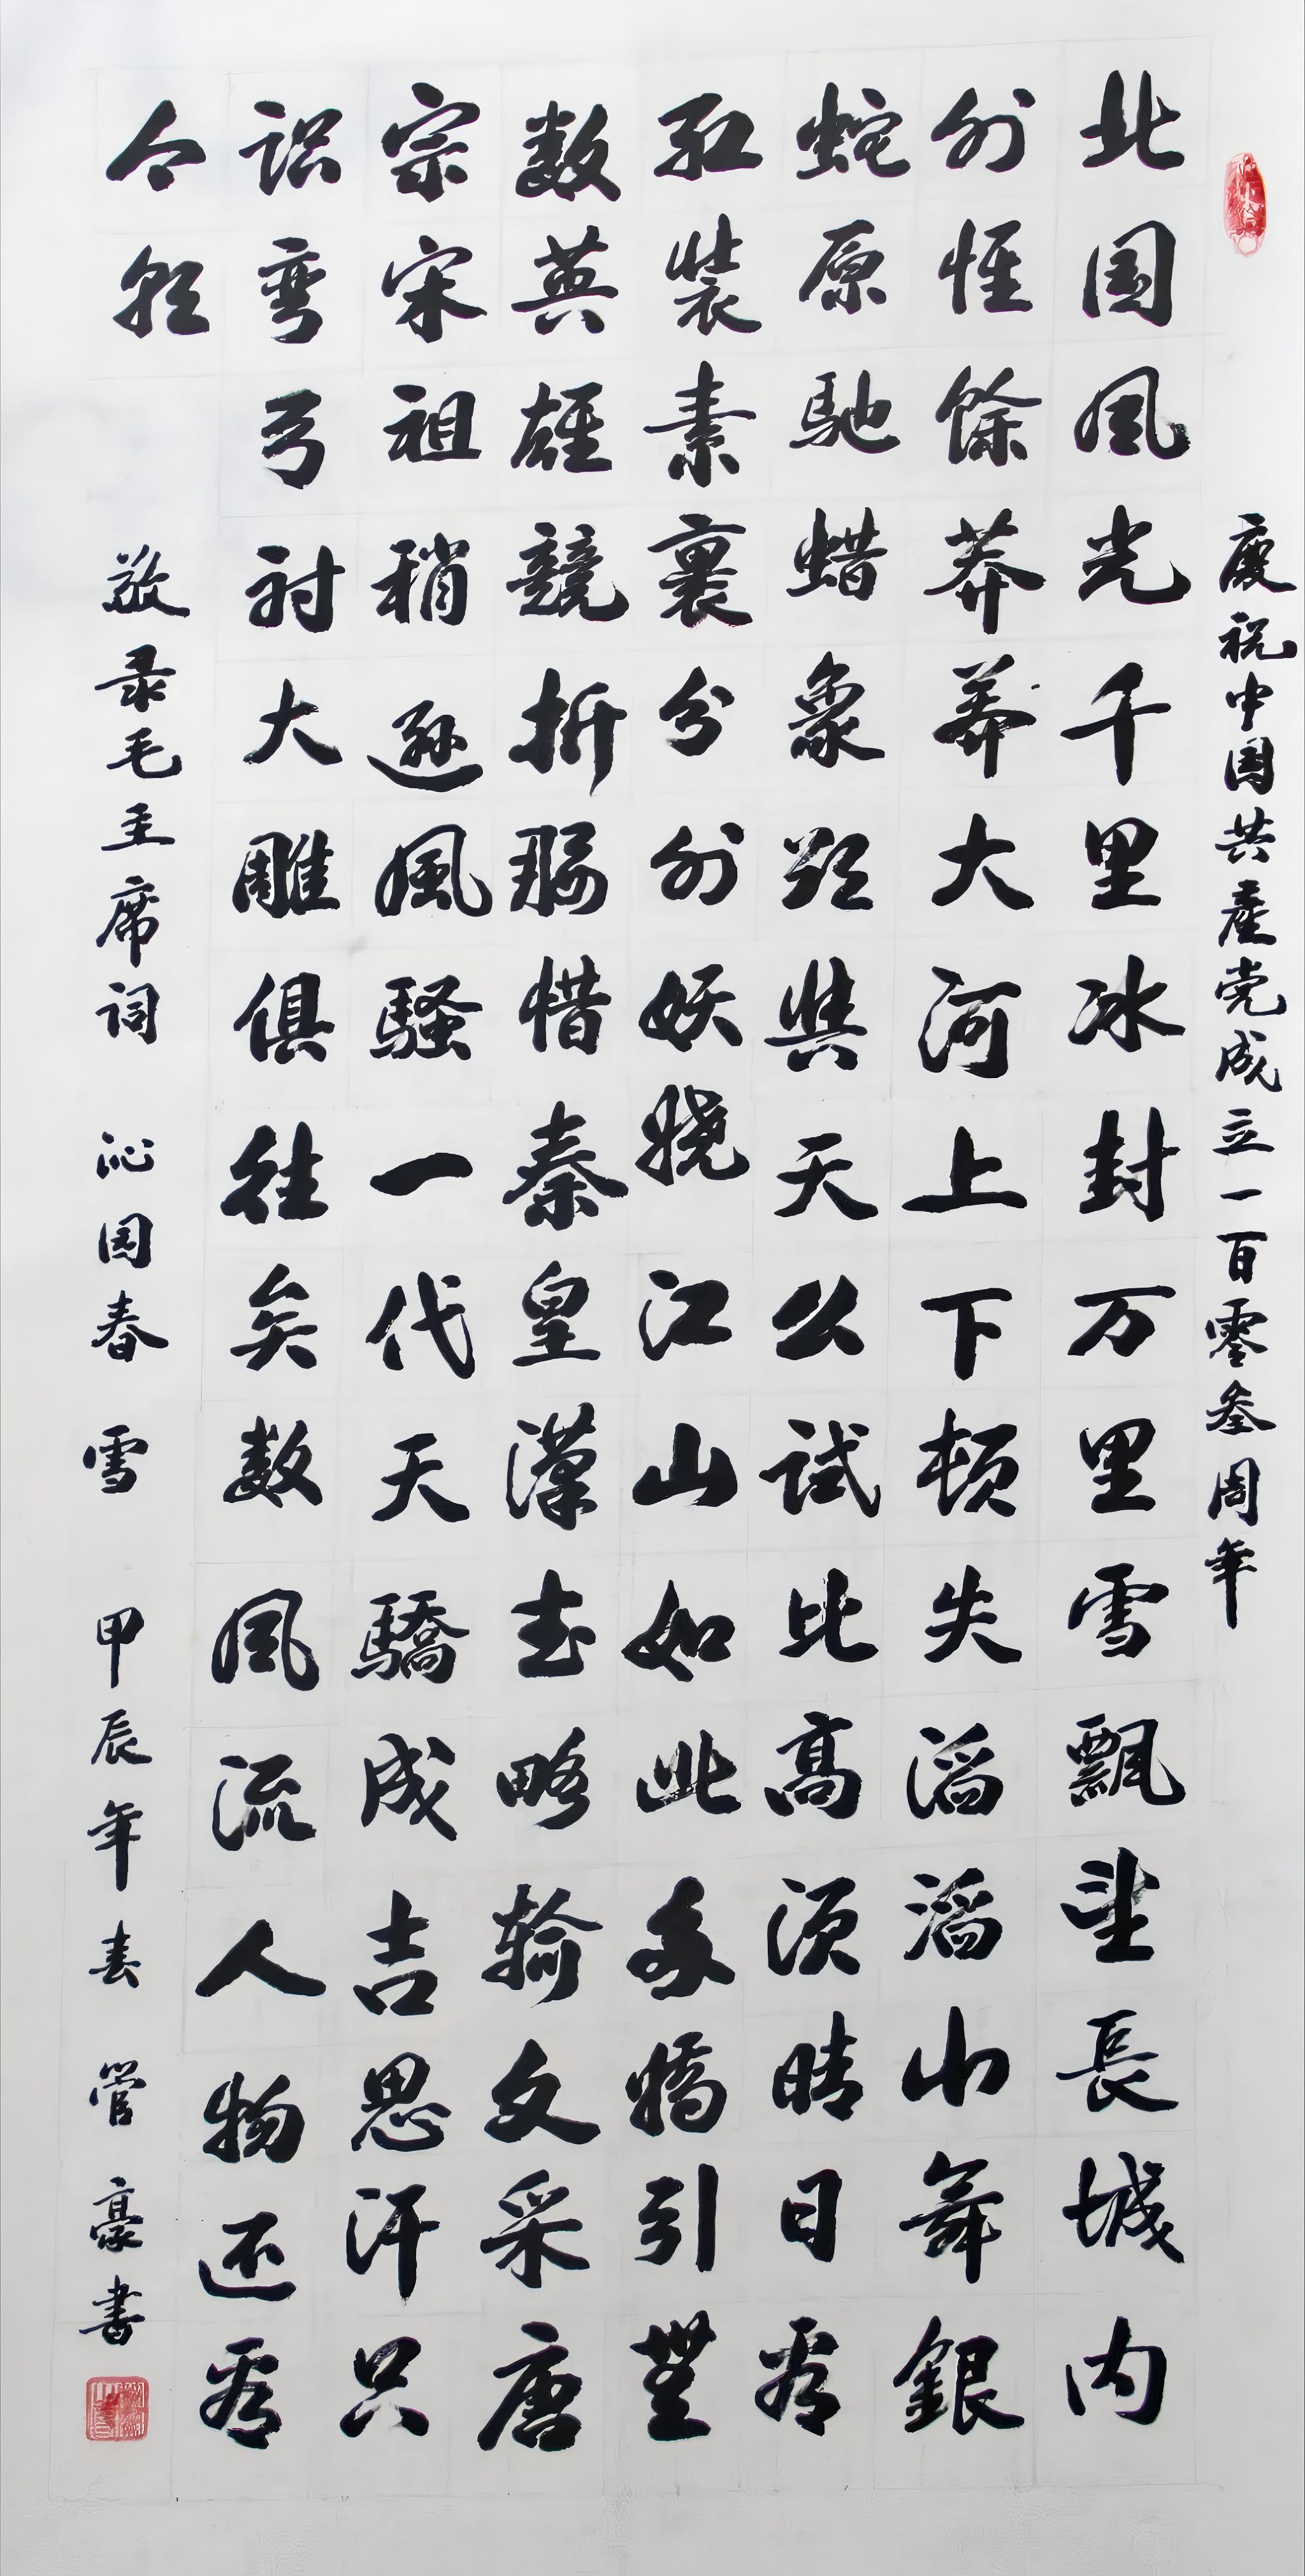 慶祝中国共產党成立一百零叁周年
北国风光千里冰封万里雪飄望長城内
外惟餘莽莽大河上下頓失滔滔山舞銀
蛇原馳蜡象欲與天公試比高須晴日看
红裝素裹分外妖娆江山如此多嬌引無
数英雄競折腰惜秦皇漢武略輸文采唐
宗宋祖稍遜風騷一代天驕成吉思汗只
识弯弓射大雕俱往矣数风流人物还看
今朝 敬录毛主席词 沁园春 雪 甲辰年春 管豪書